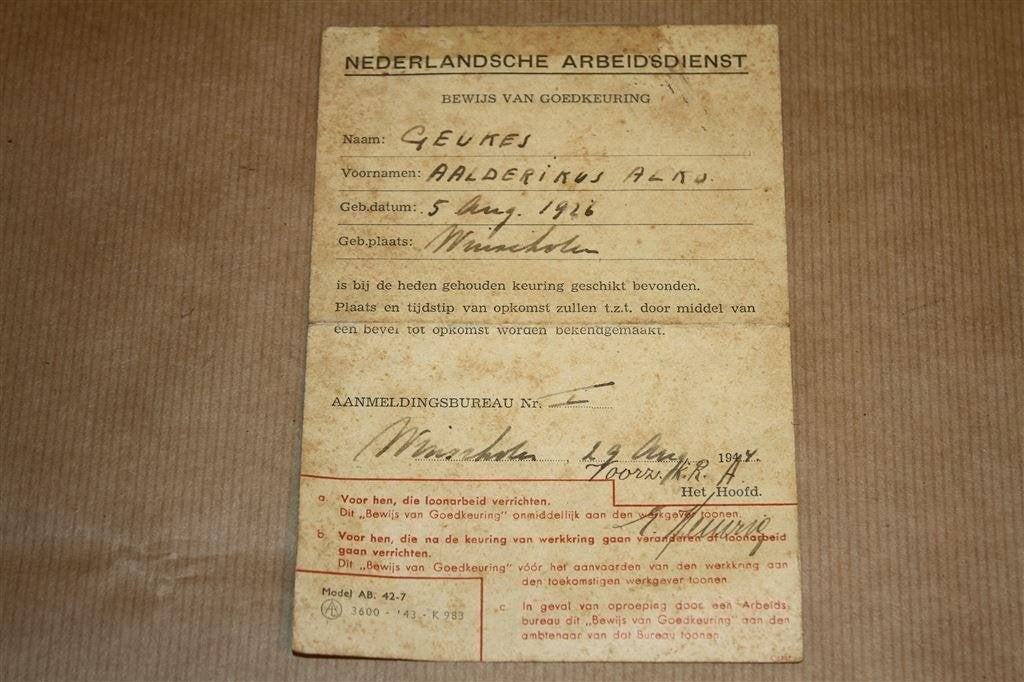 NEDERLANDSCHE ARBEIDSDIENST
BEWIJS VAN GOEDKEURING
Naam: GEUKES
Voornamen: AALDERIKUS ALKO.
Geb.datum: 5 Aug. 1926
Geb.plaats: Winschoten
is bij de heden gehouden keuring geschikt bevonden.
Plaats en tijdstip van opkomst zullen t.z.t. door middel van
een bevel tot opkomst worden bekendgemaakt.
AANMELDINGSBUREAU Nr. I
Winschoten, 29 Aug. 1944.
Voorz. K.R. A
Het Hoofd.
a. Voor hen, die loonarbeid verrichten.
Dit „Bewijs van Goedkeuring" onmiddellijk aan den werkgever toonen.
b. Voor hen, die na de keuring van werkkring gaan veranderen of loonarbeid
gaan verrichten.
Dit „Bewijs van Goedkeuring" vóór het aanvaarden van den werkkring aan
den toekomstigen werkgever toonen.
Model AB. 42-7
3600 - '43 - K 983
c. In geval van oproeping door een Arbeids-
bureau dit „Bewijs van Goedkeuring" aan den
ambtenaar van dat Bureau toonen.